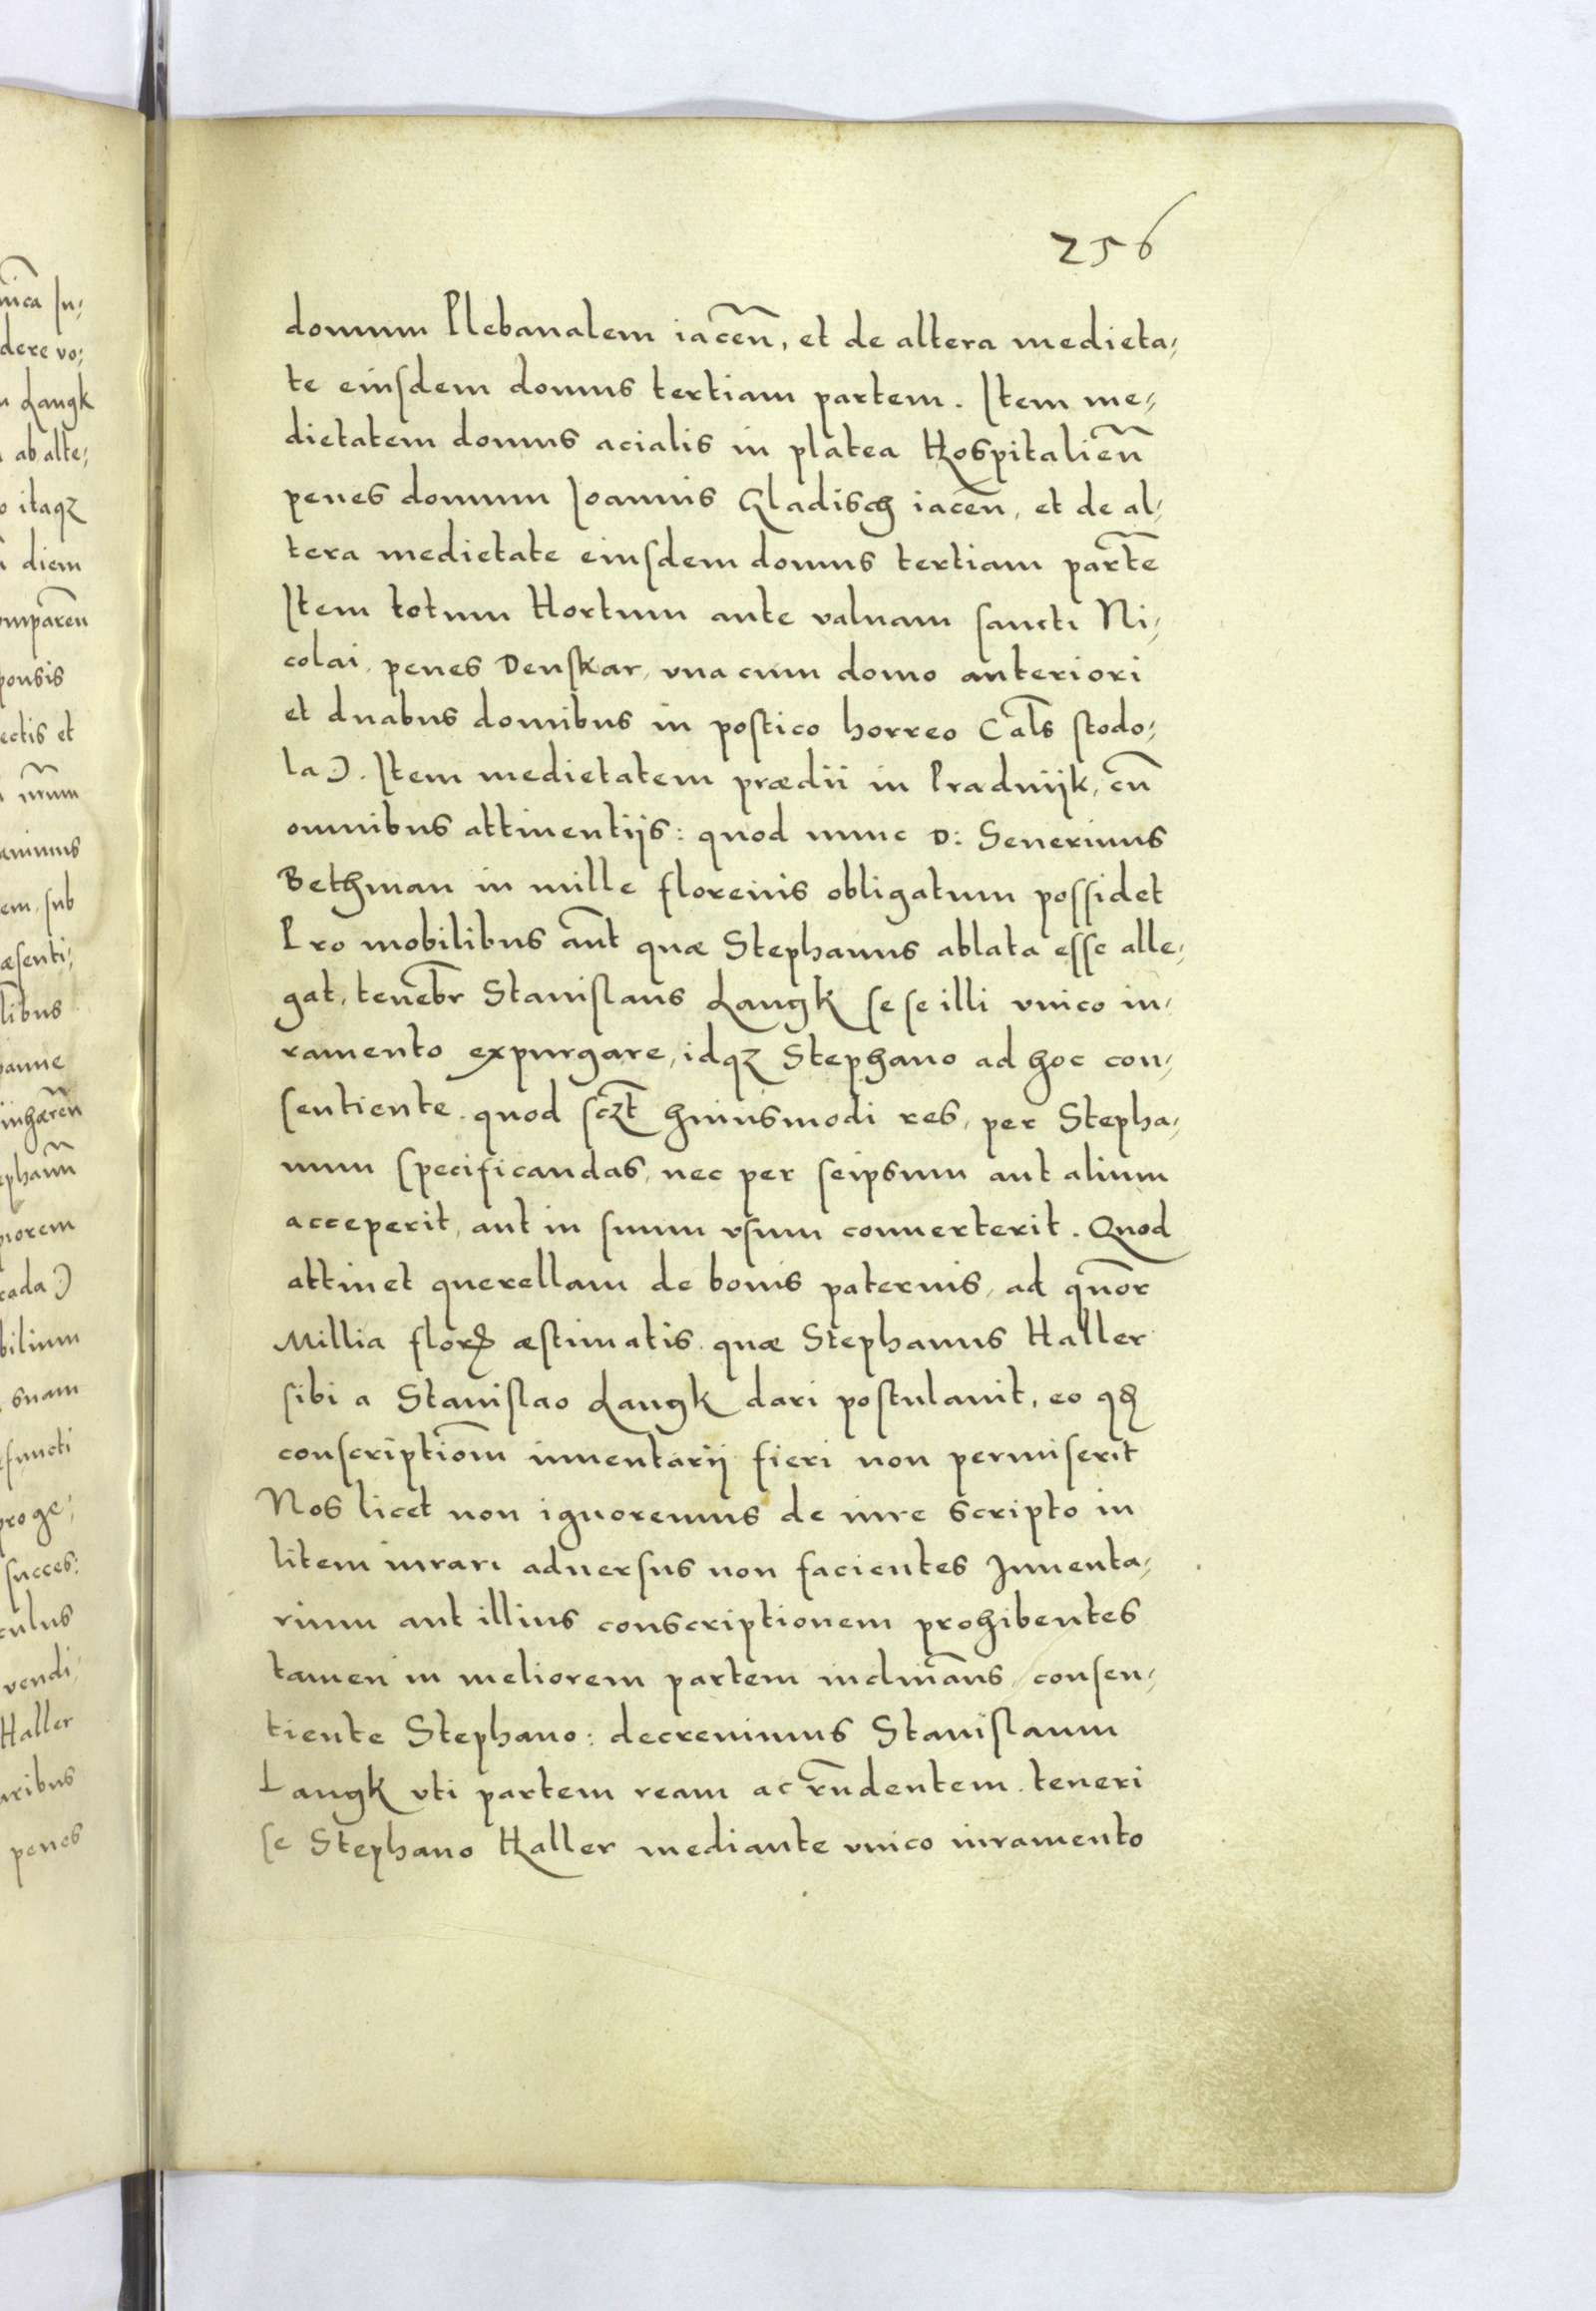 256
domum Plebanalem iaceñ, et de altera medieta,
te eiusdem domus tertiam partem. Item me,
dietatem domus acialis in platea Hospitalieñ
penes domum Joannis Gladisch iaceñ, et de al,
tera medietate eiusdem domus tertiam parte͂
Item totum Hortum ante valuam sancti Ni,
colai, penes Denskar, vna cum domo anteriori
et duabus domibus in postico horreo (al̃s stodo,
la). Item medietatem prædii in Pradnijk, cũ
omnibus attinentijs: quod nunc D: Seuerinus
Bethman in mille florenis obligatum possidet
Pro mobilibus aũt quæ Stephanus ablata esse alle,
gat, teneb̃r Stanislaus Langk se se illi vnico iu,
ramento expurgare, idqz Stephano ad hoc con,
sentiente. quod sczt̃ huiusmodi res, per Stepha,
num specificandas, nec per seipsum aut alium
acceperit, aut in suum vsum conuerterit. Quod
attinet querellam de bonis paternis, ad qũor
Millia florꝭ æstimatis. quæ Stephanus Haller
sibi a Stanislao Langk dari postulauit, eo qꝭ
conscriptiom̃ inuentarij fieri non permiserit
Nos licet non ignoremus de iure scripto in
litem iurari aduersus non facientes Inuenta,
rium aut illius conscriptionem prohibentes
tamen in meliorem partem inclinãns, consen,
tiente Stephano: decreuimus Stanislaum
Langk vti partem ream ac rñdentem. teneri
se Stephano Haller mediante vnico iuramento